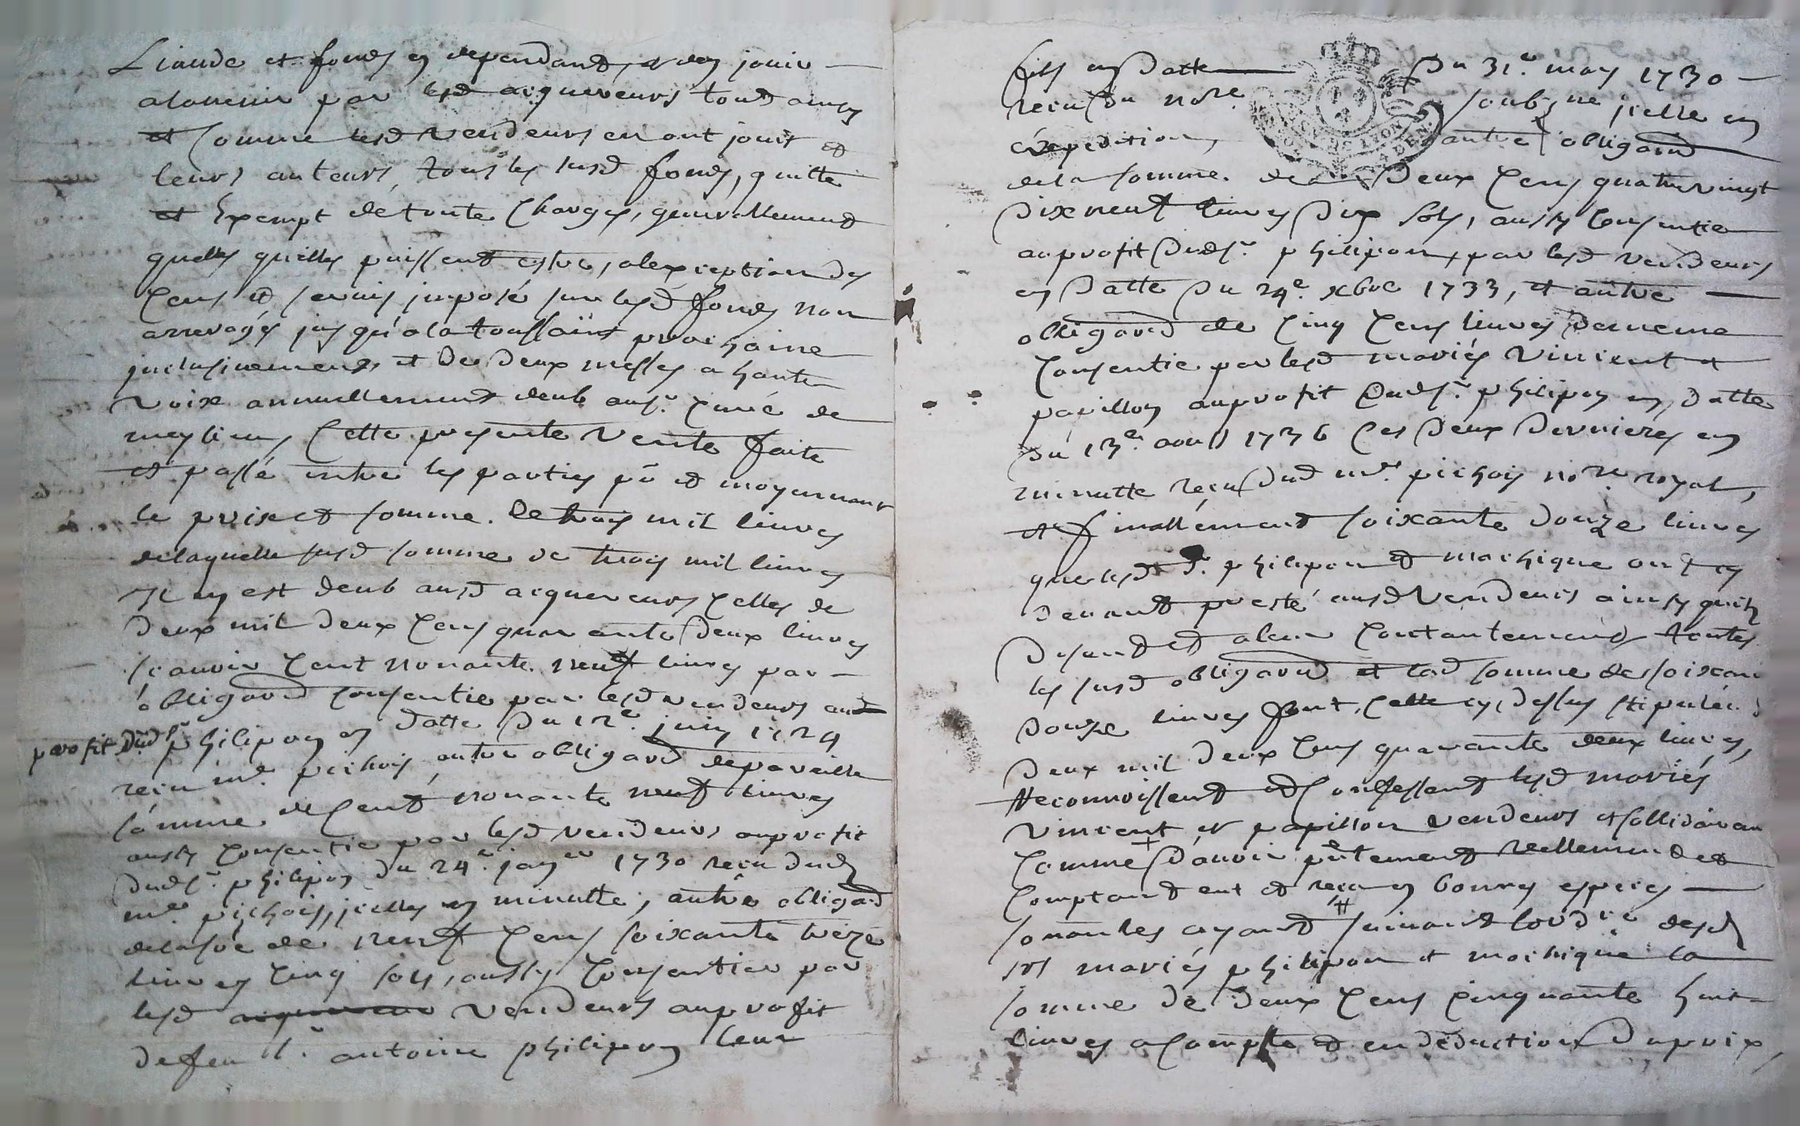 Liaude et fonds en dependant, et en jouir
alavenir par lesd acquereurs tout ainsy
et comme lesd vendeurs en ont jouit et
leurs auteurs, tous les susd fonds, quitte
et Exempt de toute charges, generallement
quelles quelles puissent estre, alexception des
cens et servis imposé sur lesd fonds non
arreragés jusqu'a la toussaint prochaine
inclusivement, et de deux messes a haute
voix annuellement deub aus.r curé de
cette presente vente faite
et passé entre les parties pñ et moyennant
le prix et somme de trois mil livres
delaquelle susd somme de trois mil livres
Il en est deub ausd acquereurs celles de
deux mil deux cens quarante deux livres
scavoir cent nonante neuf livres par
obligaõn consentie par lesd vendeurs au
profit dud s.r philipon en datte du juin 1729
receu m.e pichois, autre obligaõn de pareille
somme de cent nonante neuf livres
aussy consentie par lesd vendeurs au profit
dud s.r philipon du 24.e janv.er 1730 receu dud
m.e pichois, icelles en minutte, autre obligaõn
de la sõe de neuf cens soixante treze
livres cinq sols, aussy consentie par
lesd vendeurs au profit
de feu s.r antoine philipon leur
fils en datte du 31.e may 1730
receu du no.re soubz.né icelle en
expedition, autre obligaõn
dela somme de deux cens quatre vingt
dix neuf livres dix sols, aussy consentie
au profit dud s.r philipon, par lesd vendeurs
en datte du 24.e xbre 1733, et autre
obligaõn de cinq cens livres de meme
consentie par lesd mariés vincent et
papillon au profit dud s.r philipon en datte
du 13.e aoust 1736 ces deux dernieres en
minutte receu dud m.e pichois no.re royal,
et finallement soixante douze livres
que lesd s.r philipon et machique ont cy
devant presté ausd vendeurs ainsy quilz
disent et a leur contantement toutes
les susd obligaõn et lad somme de soixante
douze livres font, celle cy dessus stipulée de
deux mil deux cens quarante deux livres,
Reconnoissent et confessent lesd mariés
vincent et papillon vendeurs et sollidairement
comme d'avoir pñtement reellement et
comptant eut et receu en bonnes especes
sonantes ayant suivant l'ord.re desd
srs mariés philipon et machique la
somme de deux cens cinquante huit
livres acompte et en deduction du prix,